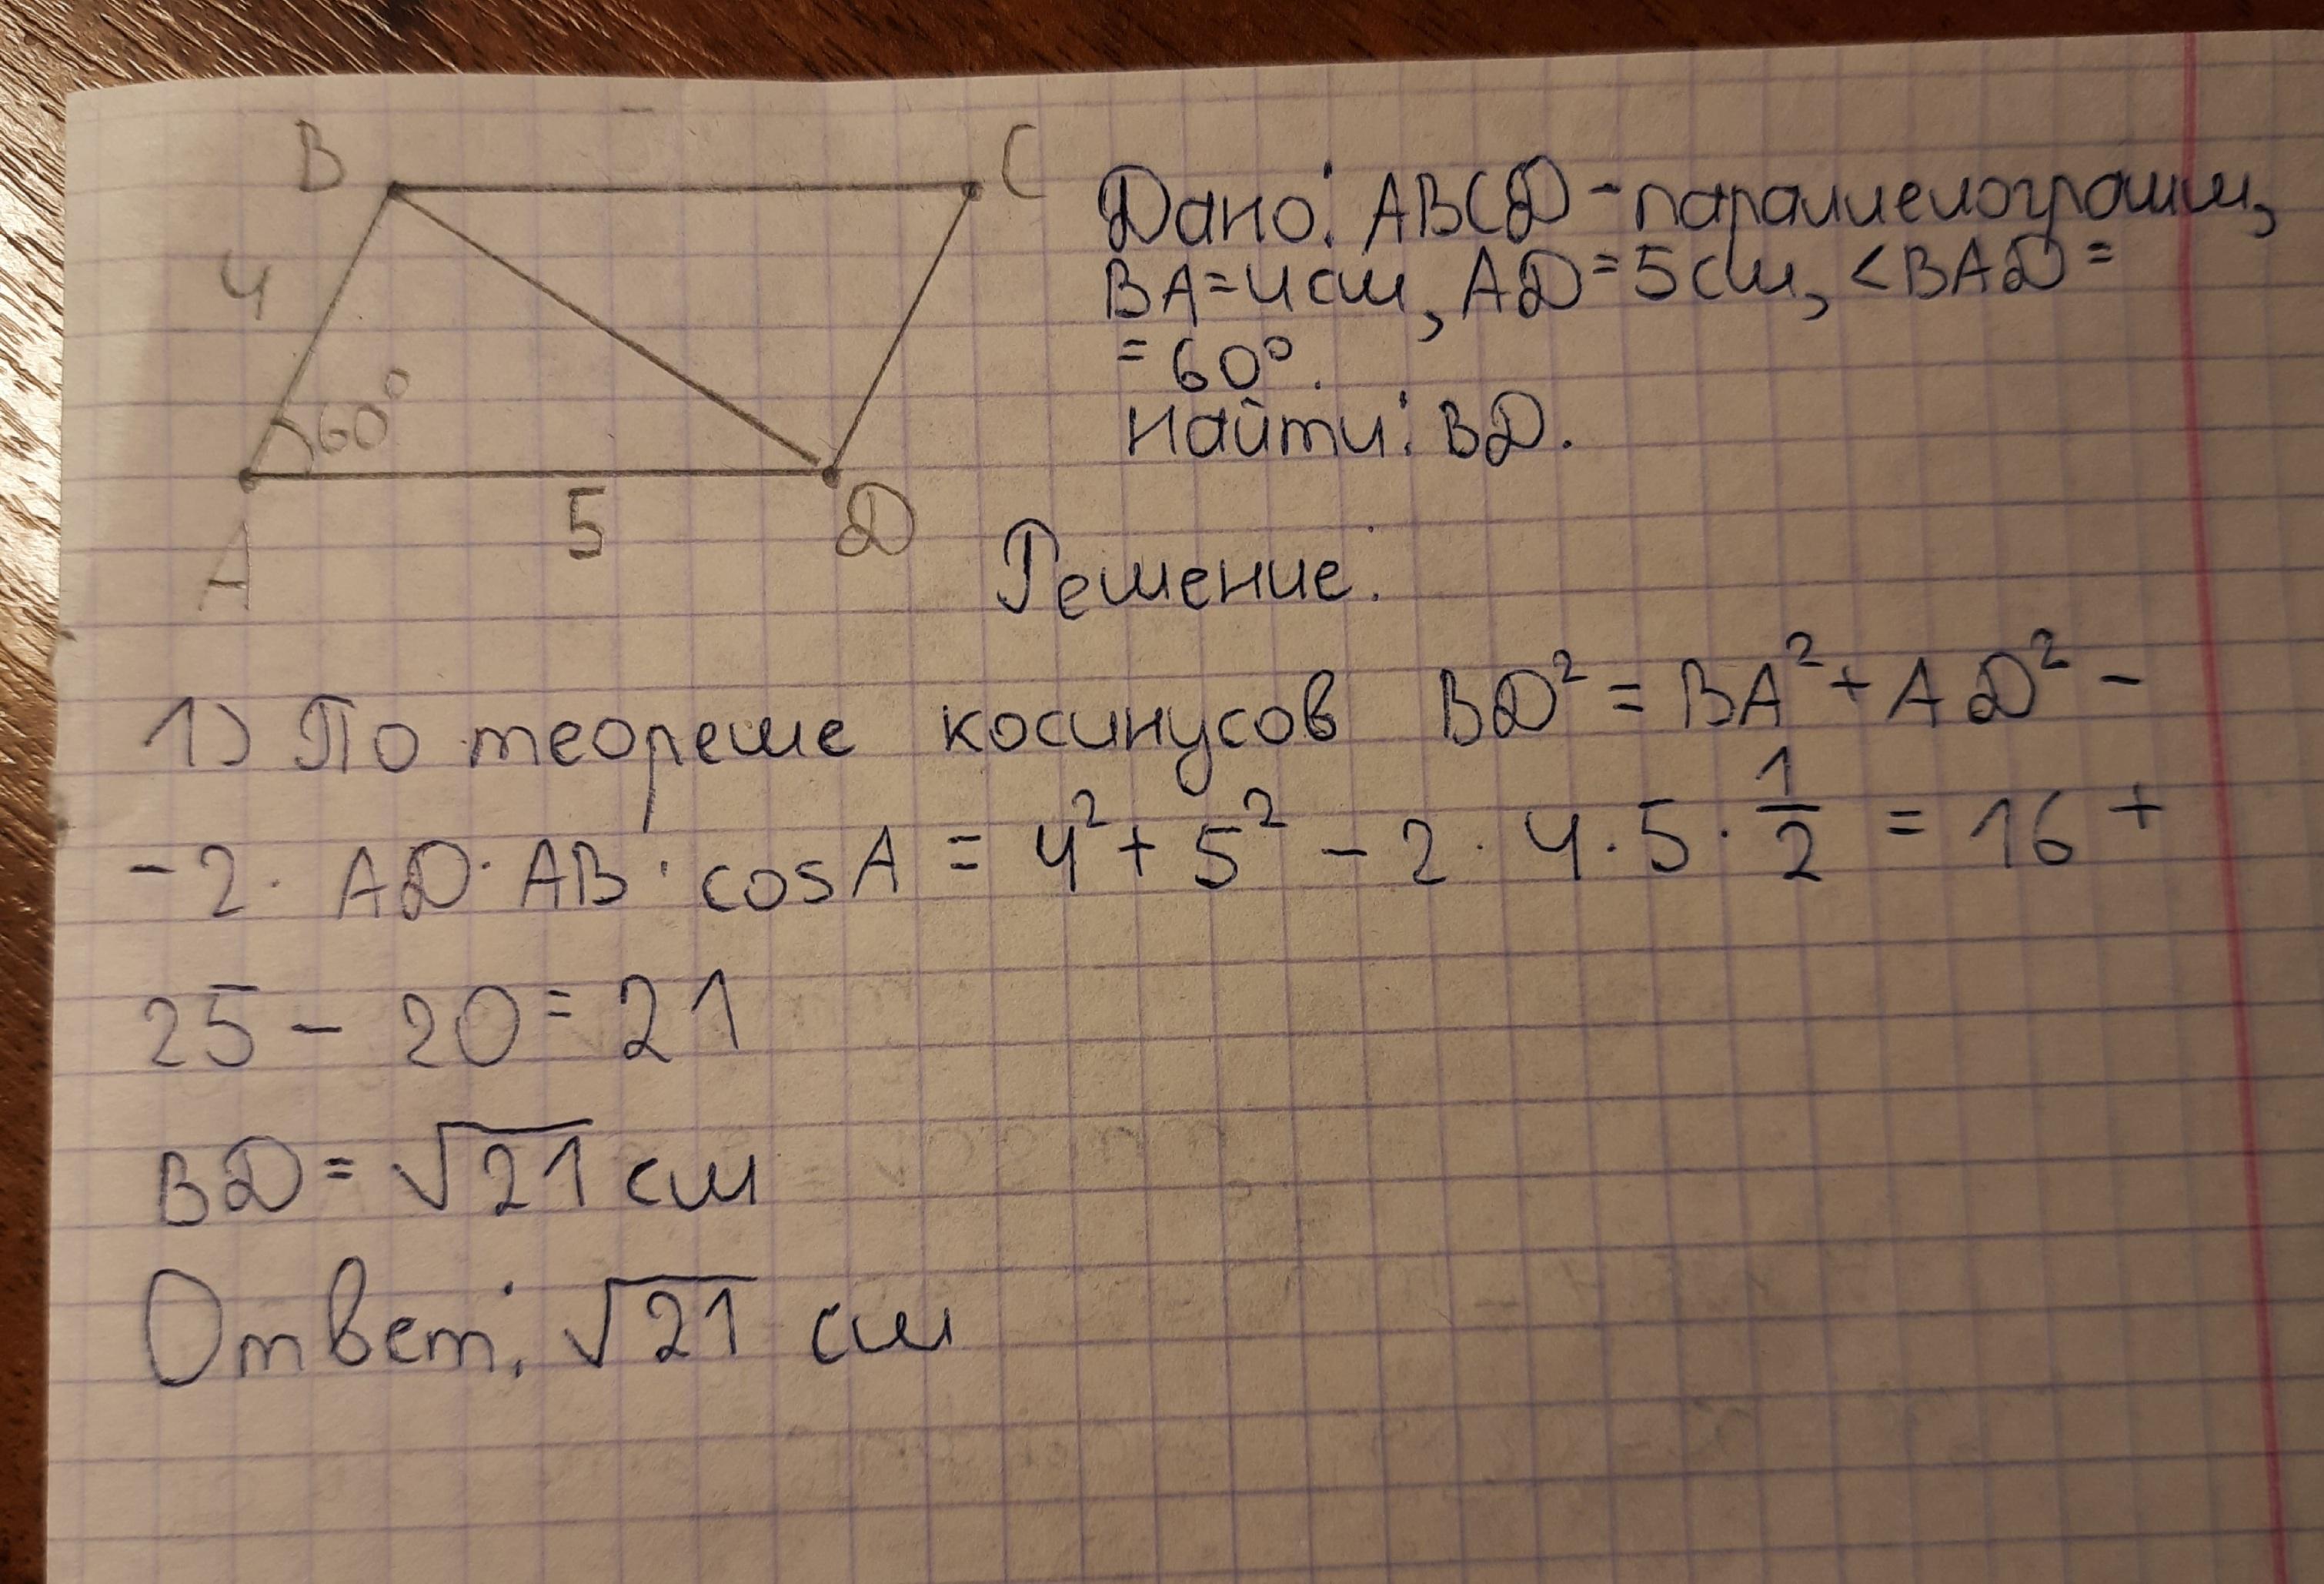 B
C
4
60°
A
5
D
Дано: ABCD - параллелограмм,
BA = 4 см, AD = 5 см, <BAD =
= 60°.
Найти: BD.
Решение:
1) По теореме косинусов BD² = BA² + AD² -
- 2 · AD · AB · cos A = 4² + 5² - 2 · 4 · 5 · 1/2 = 16 +
25 - 20 = 21
BD = √21 см
Ответ: √21 см